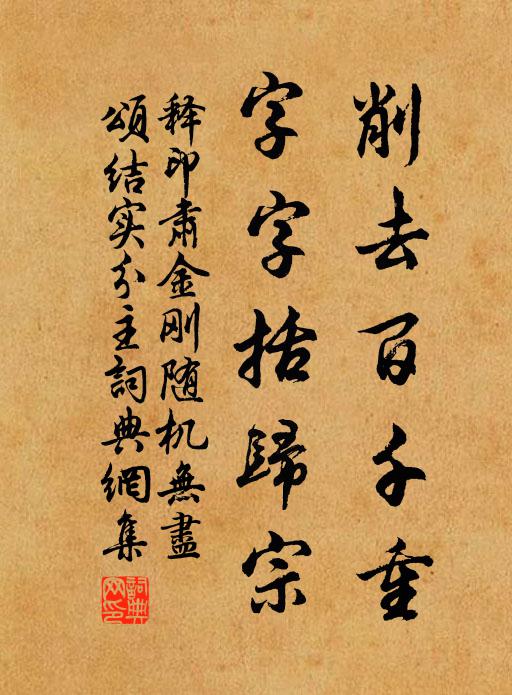 削去百千重
字字括歸宗
释印肃金刚随机無盡
頌结实分主詞典網集
詞典
网印